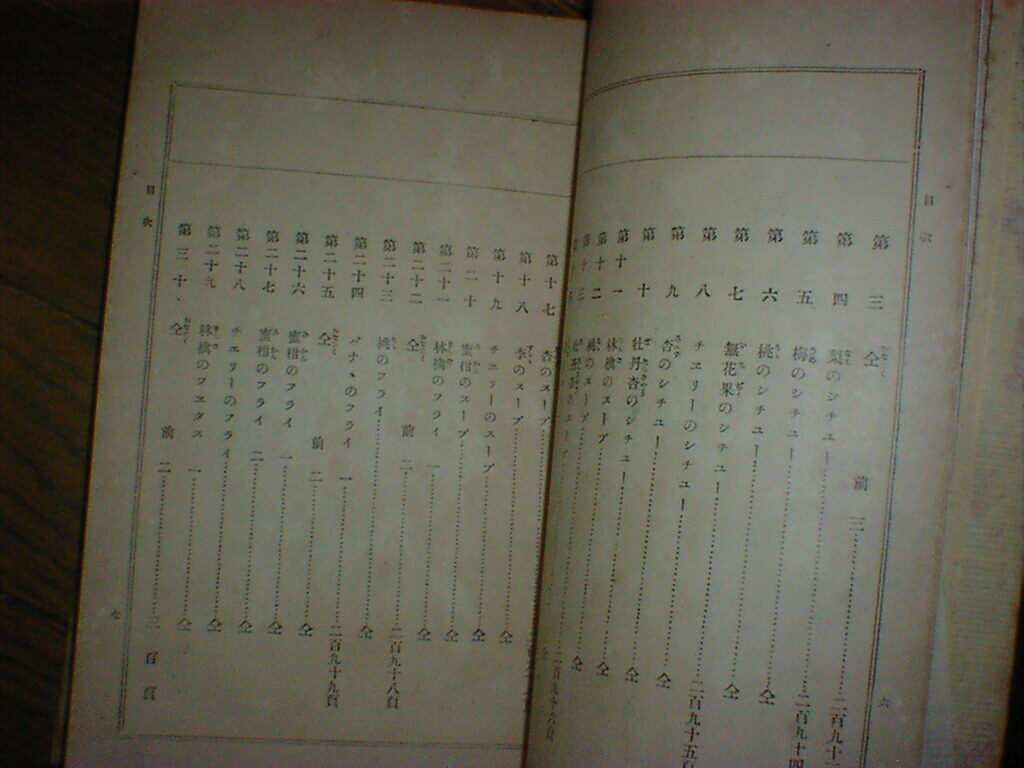 目次
六
第三 仝 前 三
第四 梨のシチユー 二百九十
第五 梅のシチユー 二百九十四
第六 桃のシチユー 仝
第七 無花果のシチユー 仝
第八 チエリーのシチユー 二百九十五頁
第九 杏のシチユー 仝
第十 牡丹杏のシチユー 仝
第十一 林檎のスープ 仝
第十二 桃のスープ 仝
第十三
第十七 杏のスープ
第十八 李のスープ 仝
第十九 チエリーのスープ 仝
第二十 蜜柑のスープ 仝
第二十一 林檎のフライ 一 仝
第二十二 仝 前 二 二百九十八頁
第二十三 桃のフライ 仝
第二十四 バナヽのフライ 一 二百九十九頁
第二十五 仝 前 二 仝
第二十六 蜜柑のフライ 一 仝
第二十七 蜜柑のフライ 二 仝
第二十八 チエリーのフライ 仝
第二十九 林檎のフエタス 一 仝
第三十 仝 前 二 三百頁
目次
七